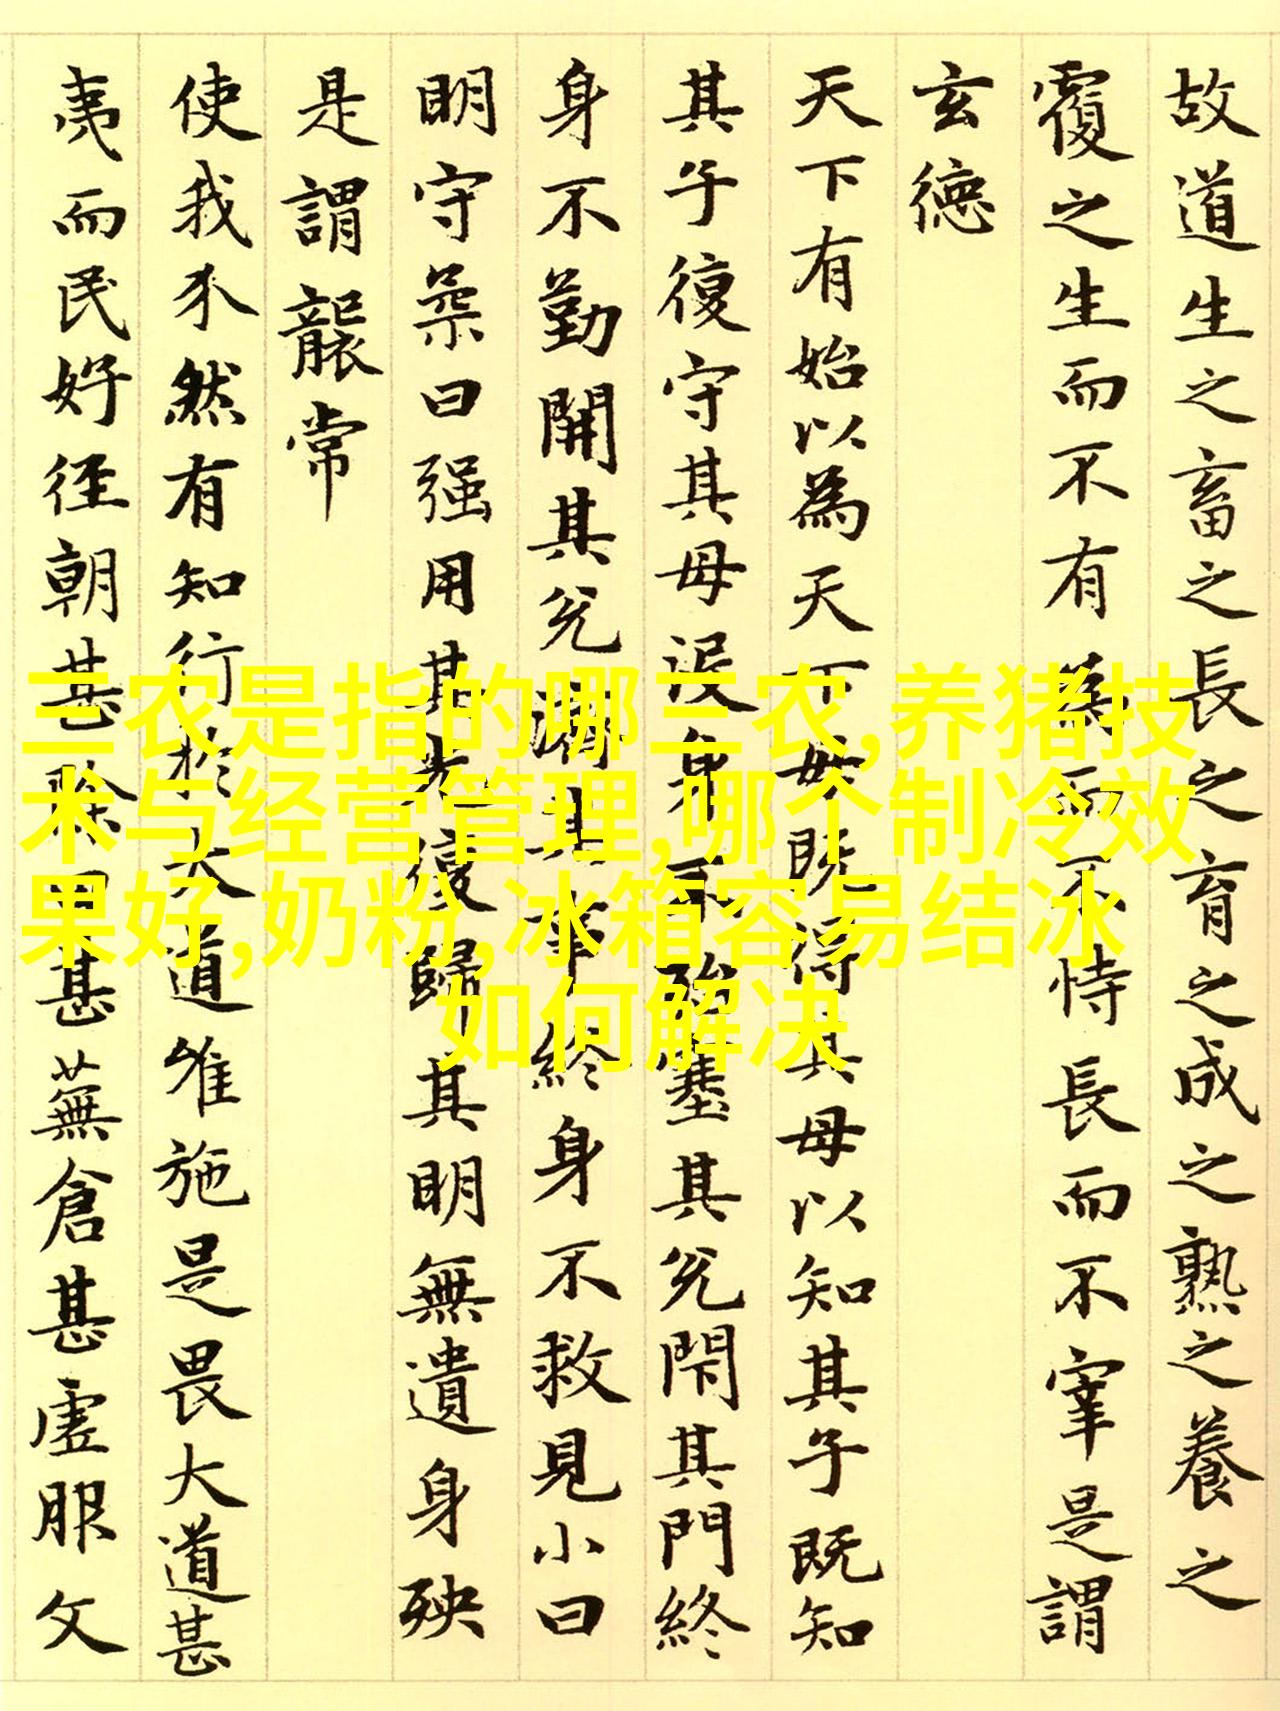 故道生之畜之長之育之成之熟之養之
覆之生而不有為而不恃長而不宰是謂
玄德
天下有始以為天下母既得其母以知其子既知
其子復守其母没身不殆塞其兌閇其門終
身不勤開其兌濟其事終身不救見小曰
明守柔曰强用其光復歸其明無遺身殃
是謂襲常
使我介然有知行於大道唯施是畏大道甚
夷而民好徑朝甚除田甚蕪倉甚虚服文
三农是指的哪三农,养猪技
术与经营管理,哪个制冷效
果好,奶粉,冰箱容易结冰
如何解决